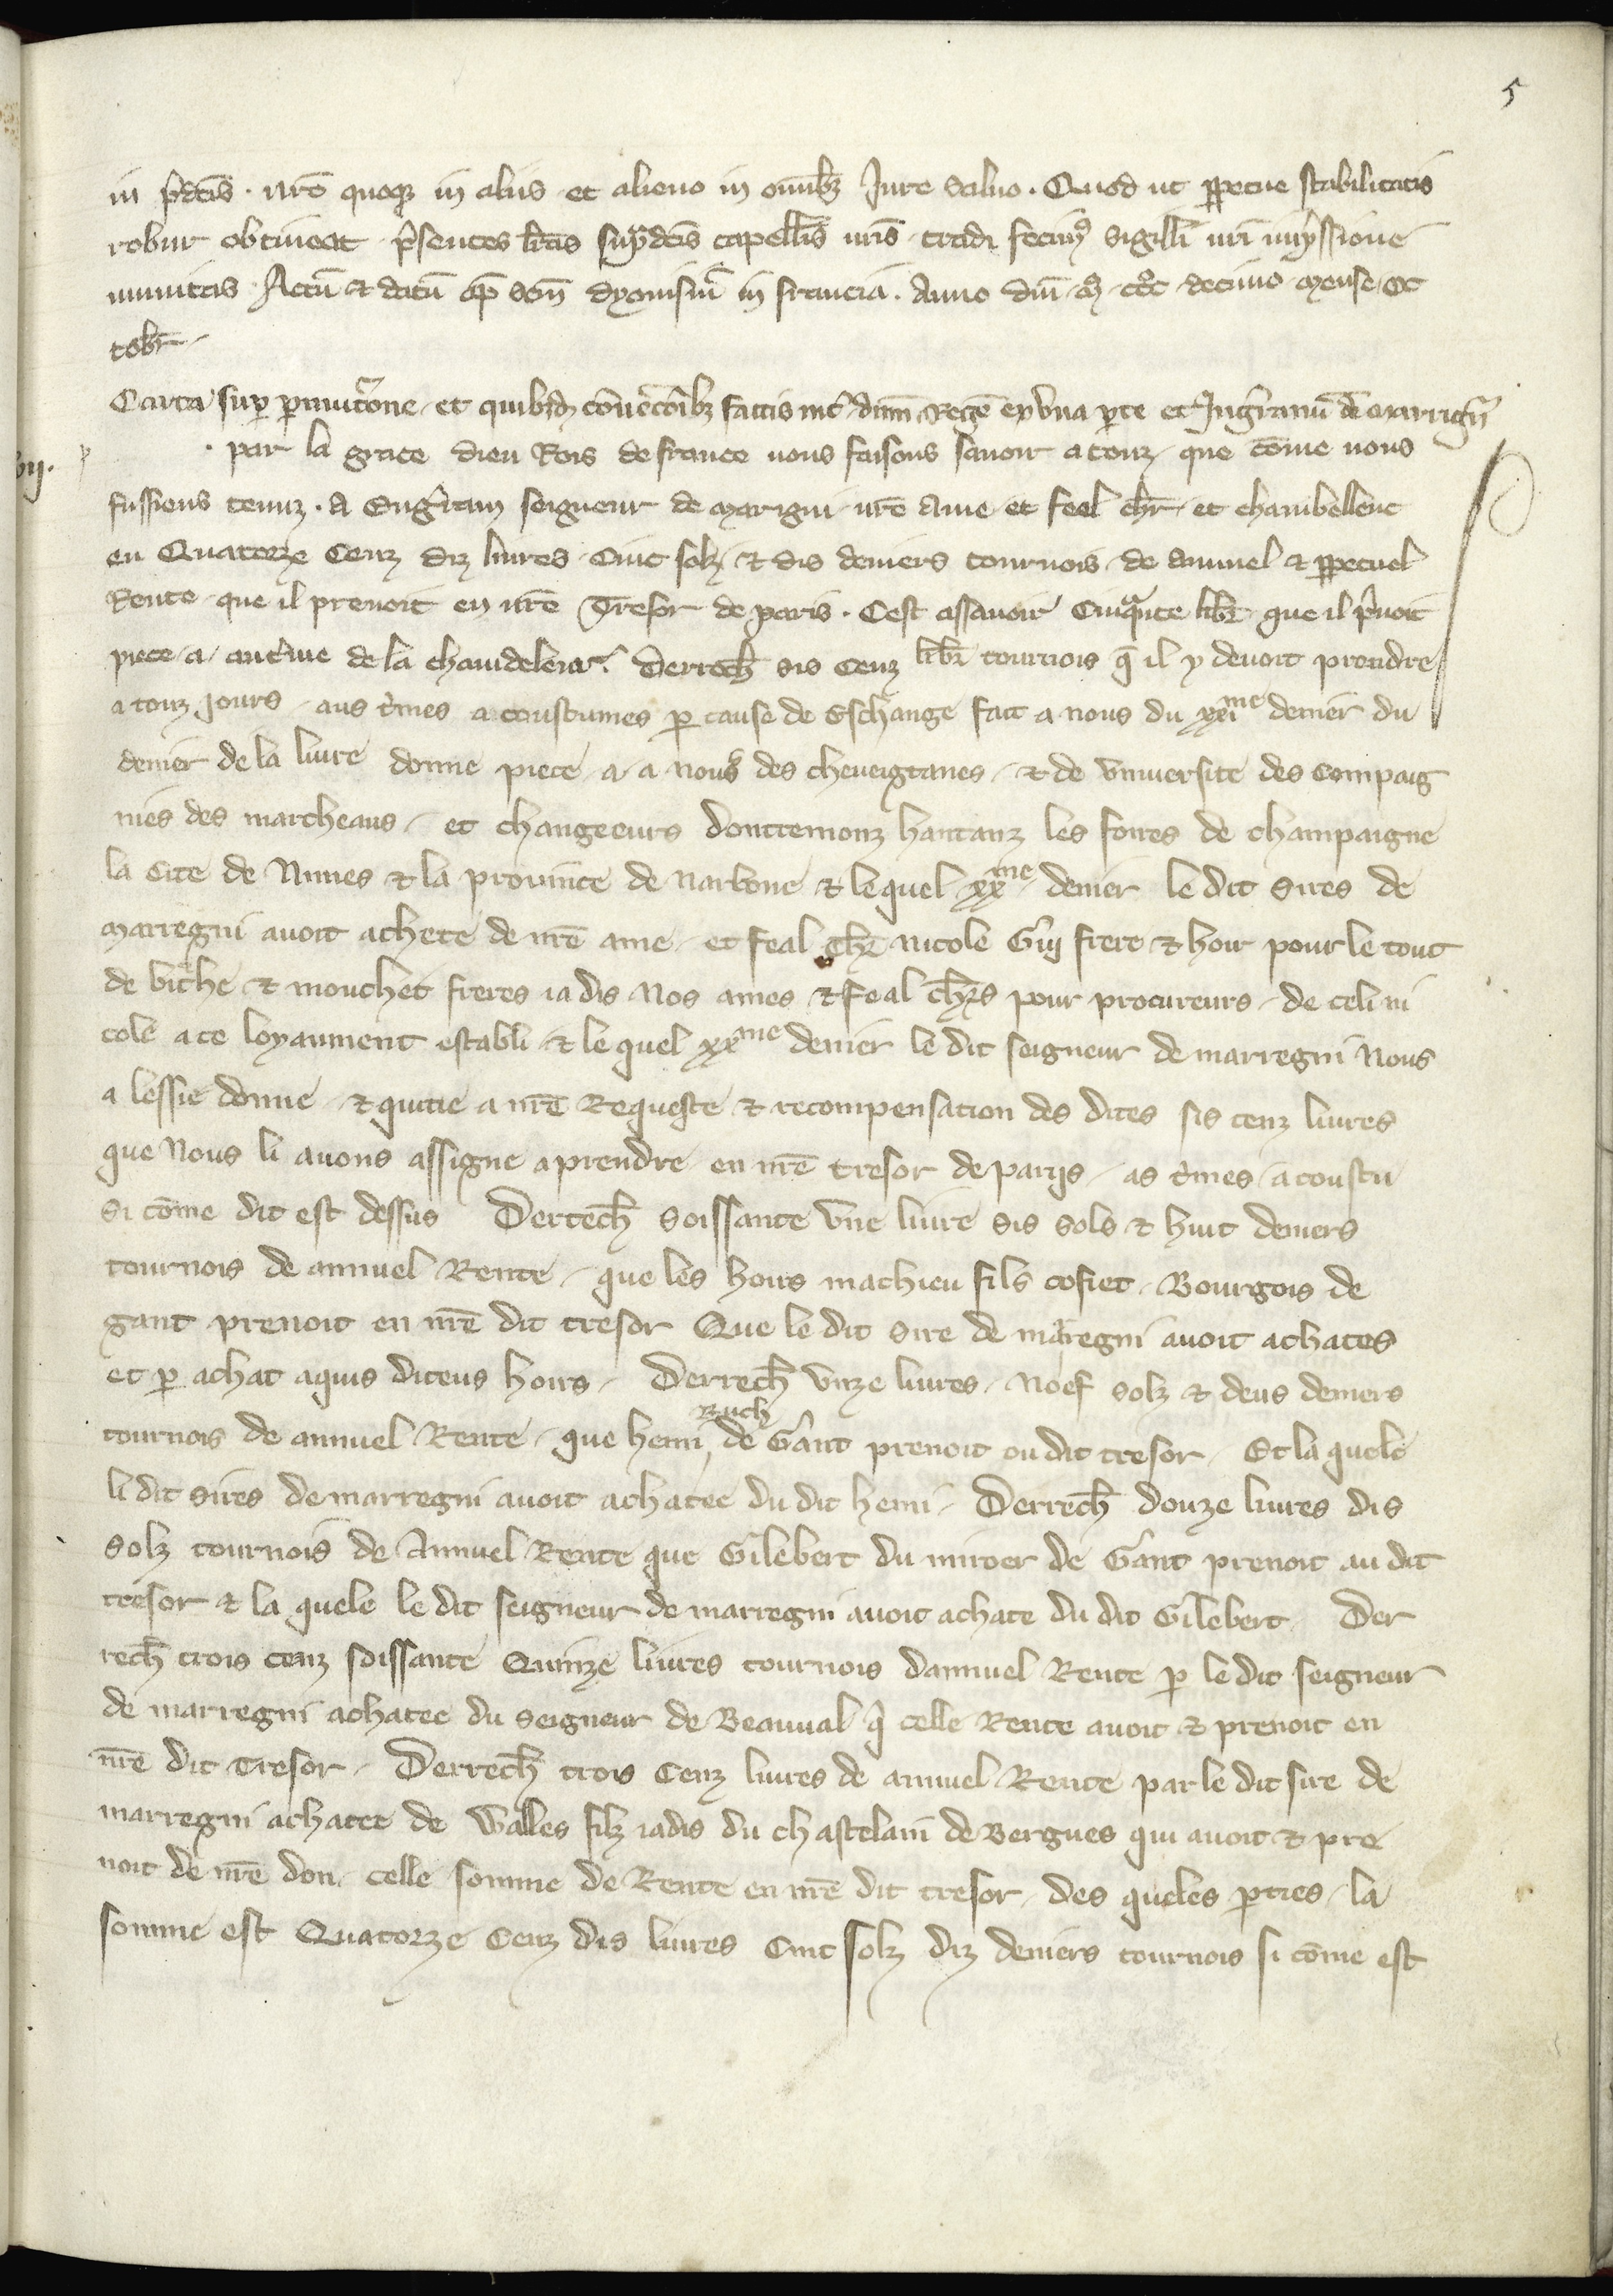 5
in p̃dc̃is · nr̃o quoqȝ in aliis et alieno in om̃ibȝ Jure saluo · Quod ut ꝑpetue stabilitatis
robur obtineat p̃sentes lr̃as sup̃dc̃is capell̃is nr̃is tradi fecimꝰ sigilli nr̃i imp̃ssione
munitas Actũ ⁊ datũ ap̃ Sc̃m dyonisiũ in francia · Anno dñi · m̊ · ccc̊ · decimo mense Oc
tobr̃
Carta suꝑ ꝑmutac̃one et quibȝdã cõuẽcõibȝ factis int̾ dñm Regẽ ex vna ꝑte et Jngr̃anũ de marrigñ
vij. p · par la grace dieu Rois de france nous faisons sauoir a touz que cõme nous
fussiens tenuz · A Engr̃ran seigneur de marigni nr̃e Ame et feel chr̃ et chambellenc
en Quatorze Cenz diz liures Cinc solz ⁊ dis deniers tournois de annuel ⁊ ꝑpetuel
Rente que il prenoit en nr̃e Tresor de paris · Cest assauoir Cinqᵃnte libr̃ que il p̃noit
piece a anc̾ine de la chandeleur · Derrech̃ sis Cenz libr̃ tournois q̃ il y deuoit prendre
a touz jours aus t̾mes acoustumes ꝑ cause de Eschange fait a nous du xxiᵐᵉ denier du
denier de la liure donne piece a a nous des cheueigtanes ⁊ de vniuersite des Compaig
nies des marcheans et changeeurs douttemonz hantanz les foires de champaigne
la Cite de Nimes ⁊ la prouince de Narbone ⁊ lequel xxᵐᵉ denier le dit Sires de
marregni auoit achete de nr̃e ame et feal Chr̃ nicole Guij frere ⁊ hoir pour le tout
de biche ⁊ mouchet freres iadis Nos ames ⁊ feal chr̃s pour procureurs de celi ni
cole a ce loyaument establi ⁊ le quel xxᵐᵉ denier le dit seigneur de marregni Nous
a lessie donne ⁊ quitie a nr̃e Requeste ⁊ recompensation des dites sis cenz liures
que Nous li auons assigne aprendre en nr̃e tresor de parijs as t̾mes acoustu
si cõme dit est dessus Derrech̃ soissante vne liure sis sols ⁊ huit deniers
tournois de annuel Rente que les hoirs machieu fils cofiet Bourgois de
gant prenoit en nr̃e dit tresor Que le dit Sire de marregni auoit achates
et ꝑ achat aquis diteus hoirs Derrech̃ vnze liures Noef solz ⁊ deus deniers
tournois de annuel Rente que henri Ruch de Gant prenoit ou dit tresor Et la quele
li dit Sires de marregni auoit achatee du dit henri Derrech̃ douze liures dis
solz tournois de Annuel Rente que Gilebert du miroer de Gant prenoit au dit
tresor ⁊ la quele le dit seigneur de marregni auoit achate du dit Gilebert Der
rech̃ trois cenz soissante Quinze liures tournois dannuel Rente ꝑ le dit seigneur
de marregni achatee du Seigneur de Beauual qⁱ celle Rente auoit ⁊ prenoit en
nr̃e dit Tresor Derrech̃ trois Cenz liures de annuel Rente par le dit sire de
marregni achatee de Walles filz iadis du chastelain de Bergues qui auoit ⁊ pre
noit de nr̃e don celle somme de Rente en nr̃e dit tresor des queles ꝑties la
somme est Quatorze Cenz dis liures Cinc solz diz deniers tournois si cõme est